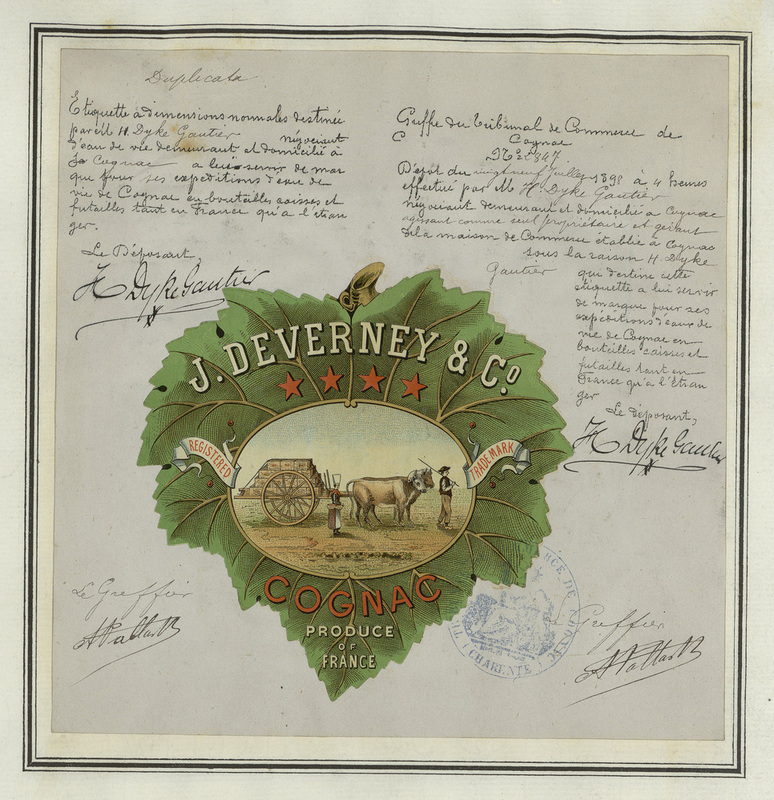 Duplicata
Etiquette à dimensions normales destinée
par Mr H. Dyke Gautier négociant
d'eau de vie demeurant et domicilié à
Cognac a lui servir de mar
que pour ses expéditions d'eau de
vie de Cognac en bouteilles caisses et
futailles tant en France qu'a l'étran
ger.
Le Déposant,
H Dyke Gautier
Greffe du Tribunal de Commerce de
Cognac
Dépôt du vingt neuf juillet 1898 à 4 heures
effectué par M H. Dyke Gautier
négociant demeurant et domicilié a Cognac
agissant comme seul propriétaire et gérant
de la maison de Commerce établie à Cognac
sous la raison H. Dyke
Gautier qui destine cette
étiquette a lui servir
de marque pour ses
expéditions d'eaux de
vie de Cognac en
bouteilles caisses et
futailles tant en
France qu'a l'étran
ger
Le déposant,
H Dyke Gautier
J. DEVERNEY & Co.
REGISTERED
TRADE MARK
COGNAC
PRODUCE
OF
FRANCE
Le Greffier
Le Greffier
CHARENTE